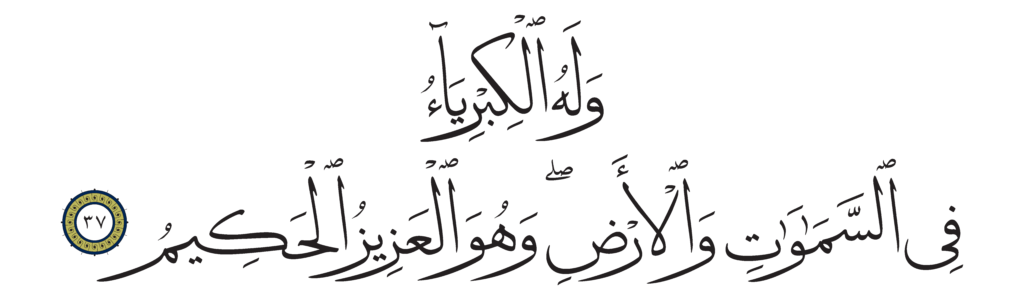 وَلَهُ ٱلْكِبْرِيَآءُ
فِى ٱلسَّمَـٰوَٰتِ وَٱلْأَرْضِ ۖ وَهُوَ ٱلْعَزِيزُ ٱلْحَكِيمُ ٣٧